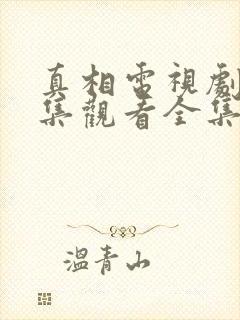 真相電視劇
集觀看全集
溫青山